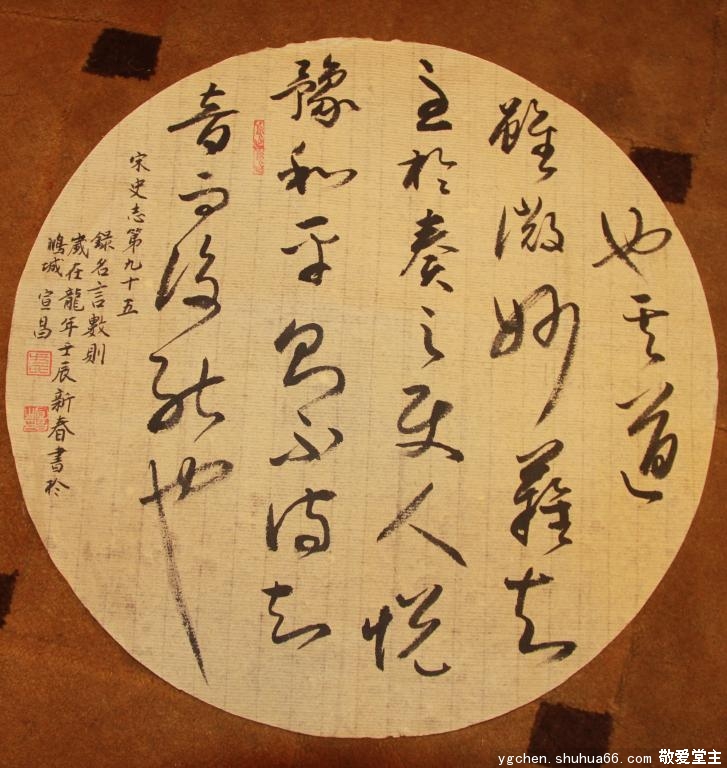 也其道
雖微妙難知
主於奏之使人悅
豫和平此不待知
音而後能也
宋史志第九十五
錄名言數則
歲在龍年壬辰新春書於
鵬城 宣昌
ygchen.shuhua66.com 敬爱堂主